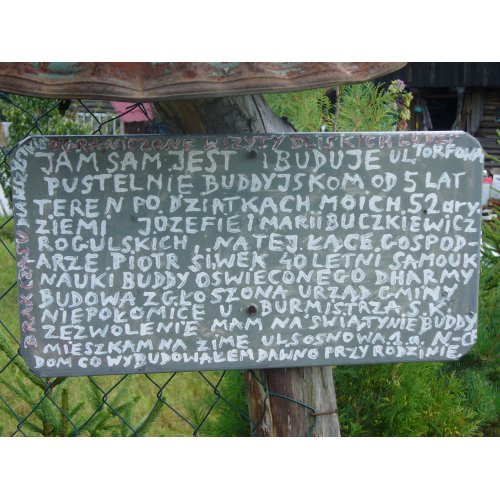 OGRANICZONE WIZYTY BLISKICH LUDZI
JAM SAM JEST I BUDUJE UL TORFOWA
PUSTELNIE BUDDYJSKOM OD 5 LAT
TEREN PO DZIATKACH MOICH 52 ary.
ZIEMI JÓZEFIE I MARII BUCZKIEWICZ
ROGULSKICH I NA TEJ ŁĄCE GOSPOD-
ARZE PIOTR SIWEK 40 LETNI SAMOUK
NAUKI BUDDY OSWIECONEGO DHARMY
BUDOWA ZGŁOSZONA URZĄD GMINY
NIEPOŁOMICE U BURMISTRZA S.K.
ZEZWOLENIE MAM NA ŚWIĄTYNIE BUDDY
MIESZKAM NA ZIMĘ UL SOSNOWA 1a N-CE
DOM CO WYBUDOWAŁEM DAWNO PRZY RODZINIE
BRAK CZASU DLA